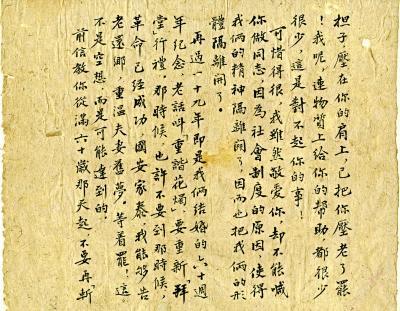 担子壓在你的肩上，已把你壓老了罷
！我呢，連物質上給你的幫助，都很少
很少，這是對不起你的事！
可惜得很，我雖然敬愛你却不能喊
你做同志，因為社會制度的原因，使得
我倆的精神隔離開了，因而也把我倆的形
體隔離開了。
再過一十九年即是我倆結婚的六十週
年紀念，老話叫「重諧花燭」，要重新「拜
堂行禮」那時候，也許不要到那時候，
革命已經成功，國安家泰，我能够告
老還鄉，重溫夫妻舊夢。等着罷！這
不是空想，而是可能達到的。
前信教你從滿六十歲那天起，不要再「斬